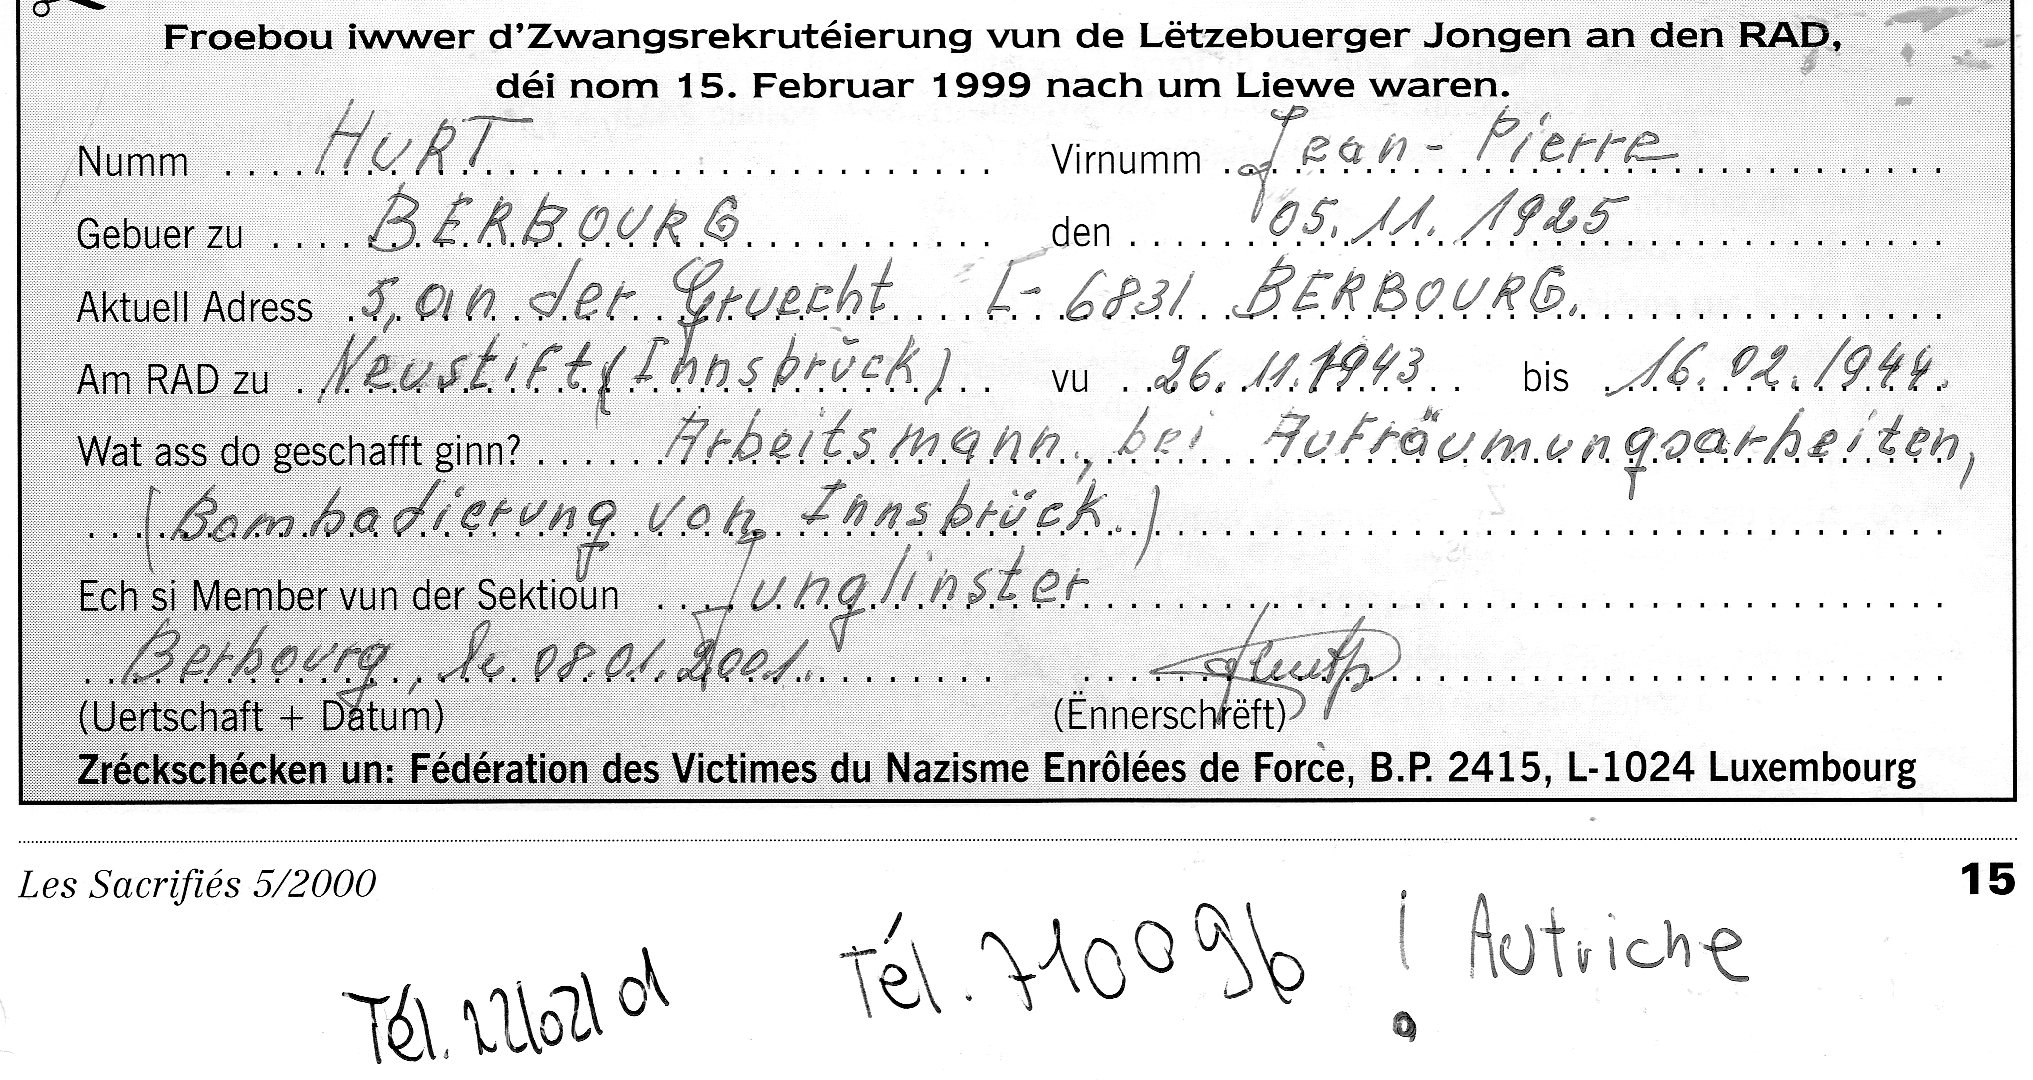 Froebou iwwer d'Zwangsrekrutéierung vun de Lëtzebuerger Jongen an den RAD,
déi nom 15. Februar 1999 nach um Liewe waren.
Numm HURT Virnumm Jean-Pierre
Gebuer zu BERBOURG den 05.11.1925
Aktuell Adress 5, an der Gruecht L-6831 BERBOURG.
Am RAD zu Neustift (Innsbrŭck) vu 26.11.1943 bis 16.02.1944.
Wat ass do geschafft ginn? Arbeitsmann, bei Aufräumungsarbeiten,
(Bombadierung von Innsbrück.)
Ech si Member vun der Sektioun Junglinster
Berbourg, le 08.01.2001.
(Uertschaft + Datum) (Ënnerschrëft)
Zréckschécken un: Fédération des Victimes du Nazisme Enrôlées de Force, B.P. 2415, L-1024 Luxembourg
Les Sacrifiés 5/2000 15
Tél. 22/02/01 Tél. 710096 ! Autriche